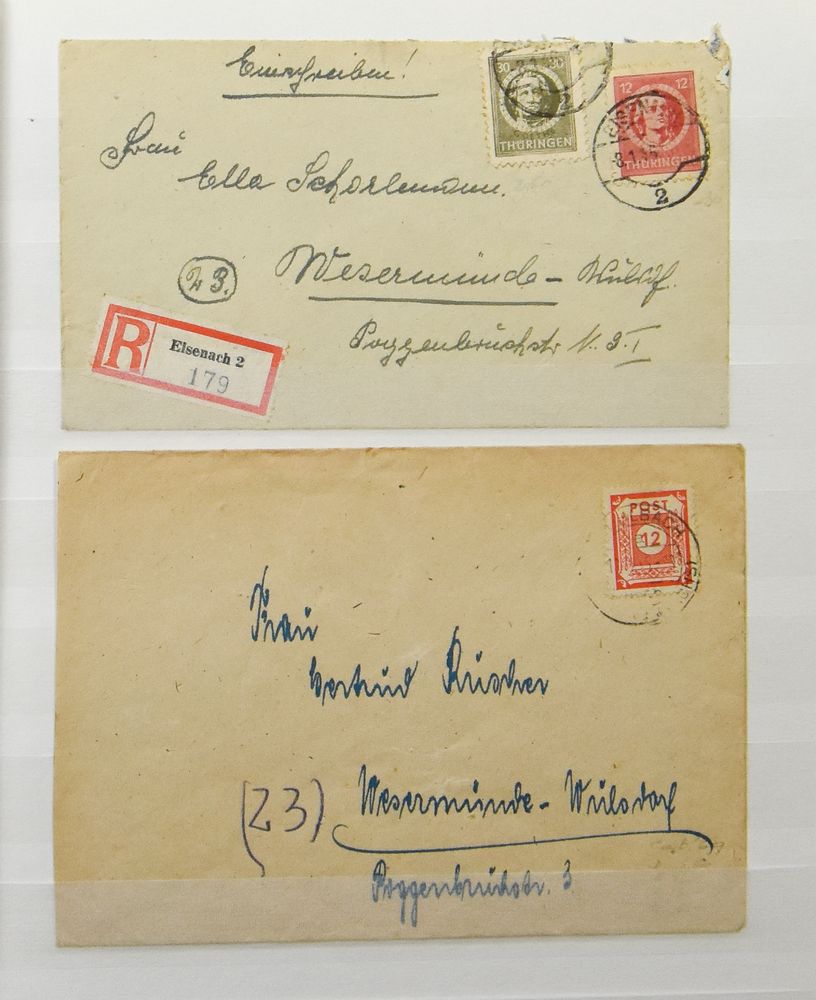 Einschreiben!
30 30
THÜRINGEN
2
12 12
THÜRINGEN
EISENA
8.1.
2
Frau
Ella Schorlemann.
23.
Wesermünde-Wulsdf.
Poggenbruchstr N. 3 I
R Eisenach 2
179
POST
12
LBACH
Frau
Gertrud Rüscher
(23) Wesermünde-Wulsdorf
Poggenbruchstr. 3